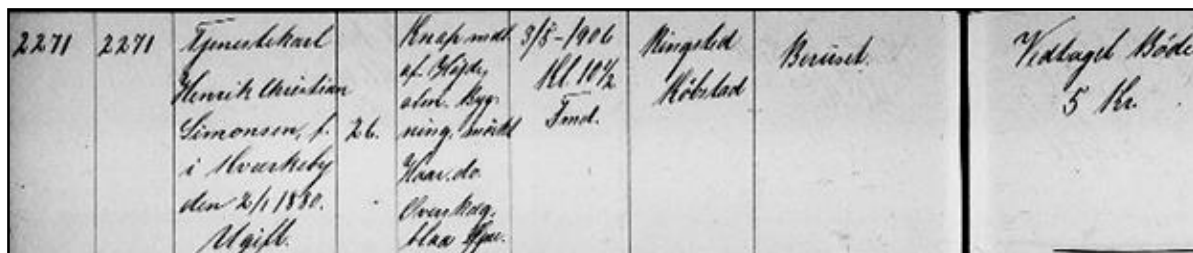 2271
2271
Tjenestekarl
Henrik Christian
Simonsen, f.
i Hværkeby
den 2/1 1880.
Ugift.
26.
Knap midl
af Højde,
alm. Byg-
ning, mörkt
Haar. do.
Overskæg.
blaa Øjne.
3/8-1906
Kl 10½
Fmd.
Ringsted
Köbstad
Beruset.
Vedtaget Böde
5 Kr.